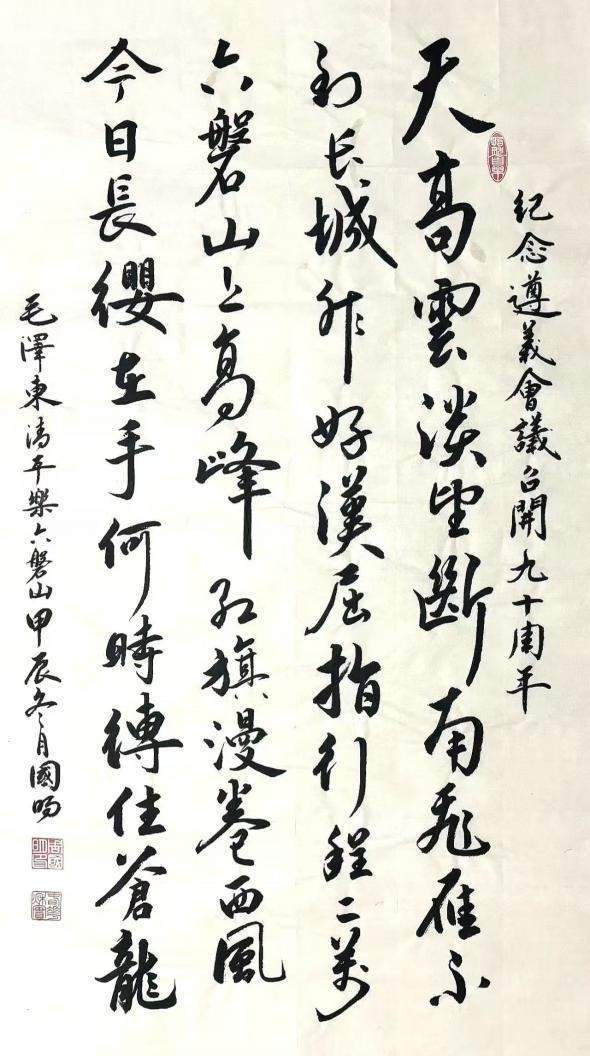 紀念遵義會議召開九十周年
天高雲淡望斷南飛雁不
到长城非好漢屈指行程二萬
六磐山上高峰红旗漫卷西風
今日長纓在手何時縛住蒼龍
毛澤東清平樂六磐山甲辰冬月國暘